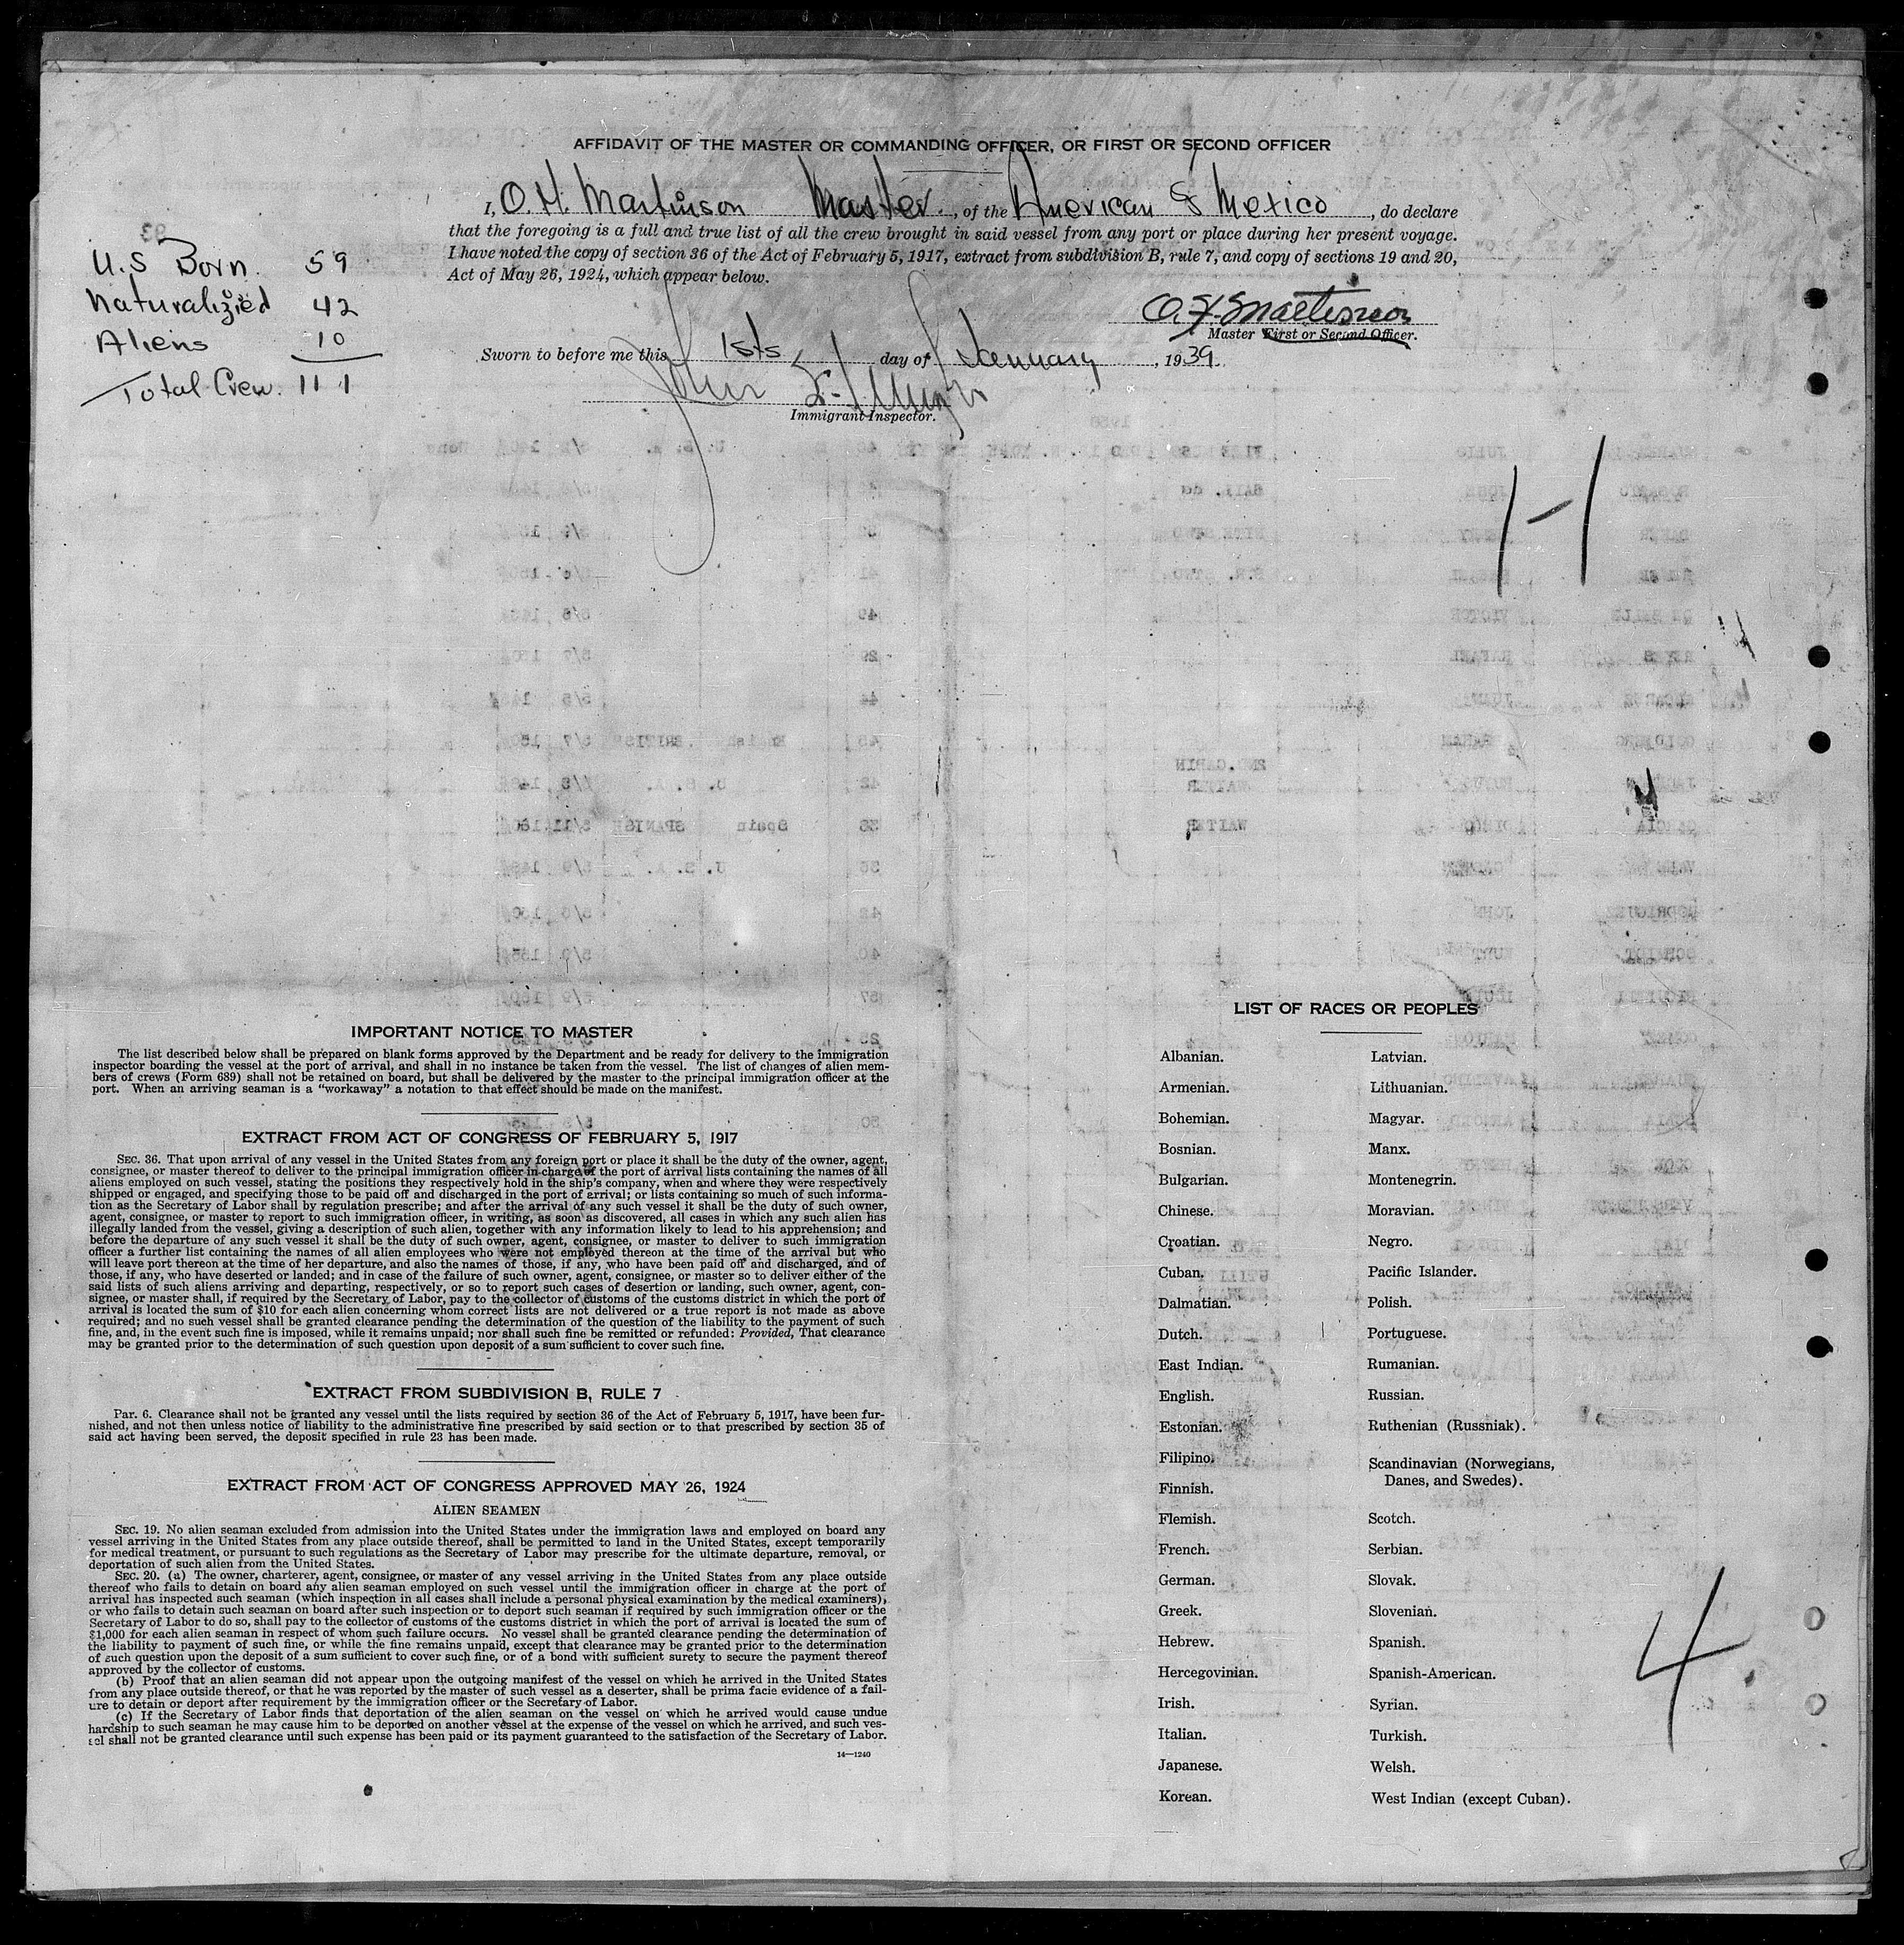 AFFIDAVIT OF THE MASTER OR COMMANDING OFFICER, OR FIRST OR SECOND OFFICER
I, O. H. Martinson Master, of the American S Mexico, do declare
that the foregoing is a full and true list of all the crew brought in said vessel from any port or place during her present voyage.
I have noted the copy of section 36 of the Act of February 5, 1917, extract from subdivision B, rule 7, and copy of sections 19 and 20,
Act of May 26, 1924, which appear below.
U.S Born. 59
Naturalizied 42
Aliens 10
Total Crew. 111
Master First or Second Officer.
Sworn to before me this 1sts, day of January, 1939.
John
Immigrant Inspector.
1-1
IMPORTANT NOTICE TO MASTER
The list described below shall be prepared on blank forms approved by the Department and be ready for delivery to the immigration
inspector boarding the vessel at the port of arrival, and shall in no instance be taken from the vessel. The list of changes of alien mem-
bers of crews (Form 689) shall not be retained on board, but shall be delivered by the master to the principal immigration officer at the
port. When an arriving seaman is a "workaway" a notation to that effect should be made on the manifest.
EXTRACT FROM ACT OF CONGRESS OF FEBRUARY 5, 1917
SEC. 36. That upon arrival of any vessel in the United States from any foreign port or place it shall be the duty of the owner, agent,
consignee, or master thereof to deliver to the principal immigration officer in charge of the port of arrival lists containing the names of all
aliens employed on such vessel, stating the positions they respectively hold in the ship's company, when and where they were respectively
shipped or engaged, and specifying those to be paid off and discharged in the port of arrival; or lists containing so much of such informa-
tion as the Secretary of Labor shall by regulation prescribe; and after the arrival of any such vessel it shall be the duty of such owner,
agent, consignee, or master to report to such immigration officer, in writing, as soon as discovered, all cases in which any such alien has
illegally landed from the vessel, giving a description of such alien, together with any information likely to lead to his apprehension; and
before the departure of any such vessel it shall be the duty of such owner, agent, consignee, or master to deliver to such immigration
officer a further list containing the names of all alien employees who were not employed thereon at the time of the arrival but who
will leave port thereon at the time of her departure, and also the names of those, if any, who have been paid off and discharged, and of
those, if any, who have deserted or landed; and in case of the failure of such owner, agent, consignee, or master so to deliver either of the
said lists of such aliens arriving and departing, respectively, or so to report such cases of desertion or landing, such owner, agent, con-
signee, or master shall, if required by the Secretary of Labor, pay to the collector of customs of the customs district in which the port of
arrival is located the sum of $10 for each alien concerning whom correct lists are not delivered or a true report is not made as above
required; and no such vessel shall be granted clearance pending the determination of the question of the liability to the payment of such
fine, and, in the event such fine is imposed, while it remains unpaid; nor shall such fine be remitted or refunded: Provided, That clearance
may be granted prior to the determination of such question upon deposit of a sum sufficient to cover such fine.
EXTRACT FROM SUBDIVISION B, RULE 7
Par. 6. Clearance shall not be granted any vessel until the lists required by section 36 of the Act of February 5, 1917, have been fur-
nished, and not then unless notice of liability to the administrative fine prescribed by said section or to that prescribed by section 35 of
said act having been served, the deposit specified in rule 23 has been made.
EXTRACT FROM ACT OF CONGRESS APPROVED MAY 26, 1924
ALIEN SEAMEN
SEC. 19. No alien seaman excluded from admission into the United States under the immigration laws and employed on board any
vessel arriving in the United States from any place outside thereof, shall be permitted to land in the United States, except temporarily
for medical treatment, or pursuant to such regulations as the Secretary of Labor may prescribe for the ultimate departure, removal, or
deportation of such alien from the United States.
SEC. 20. (a) The owner, charterer, agent, consignee, or master of any vessel arriving in the United States from any place outside
thereof who fails to detain on board any alien seaman employed on such vessel until the immigration officer in charge at the port of
arrival has inspected such seaman (which inspection in all cases shall include a personal physical examination by the medical examiners),
or who fails to detain such seaman on board after such inspection or to deport such seaman if required by such immigration officer or the
Secretary of Labor to do so, shall pay to the collector of customs of the customs district in which the port of arrival is located the sum of
$1,000 for each alien seaman in respect of whom such failure occurs. No vessel shall be granted clearance pending the determination of
the liability to payment of such fine, or while the fine remains unpaid, except that clearance may be granted prior to the determination
of such question upon the deposit of a sum sufficient to cover such fine, or of a bond with sufficient surety to secure the payment thereof
approved by the collector of customs.
(b) Proof that an alien seaman did not appear upon the outgoing manifest of the vessel on which he arrived in the United States
from any place outside thereof, or that he was reported by the master of such vessel as a deserter, shall be prima facie evidence of a fail-
ure to detain or deport after requirement by the immigration officer or the Secretary of Labor.
(c) If the Secretary of Labor finds that deportation of the alien seaman on the vessel on which he arrived would cause undue
hardship to such seaman he may cause him to be deported on another vessel at the expense of the vessel on which he arrived, and such ves-
sel shall not be granted clearance until such expense has been paid or its payment guaranteed to the satisfaction of the Secretary of Labor.
14—1240
LIST OF RACES OR PEOPLES
Albanian.
Armenian.
Bohemian.
Bosnian.
Bulgarian.
Chinese.
Croatian.
Cuban.
Dalmatian.
Dutch.
East Indian.
English.
Estonian.
Filipino.
Finnish.
Flemish.
French.
German.
Greek.
Hebrew.
Hercegovinian.
Irish.
Italian.
Japanese.
Korean.
Latvian.
Lithuanian.
Magyar.
Manx.
Montenegrin.
Moravian.
Negro.
Pacific Islander.
Polish.
Portuguese.
Rumanian.
Russian.
Ruthenian (Russniak).
Scandinavian (Norwegians,
Danes, and Swedes).
Scotch.
Serbian.
Slovak.
Slovenian.
Spanish.
Spanish-American.
Syrian.
Turkish.
Welsh.
West Indian (except Cuban).
4